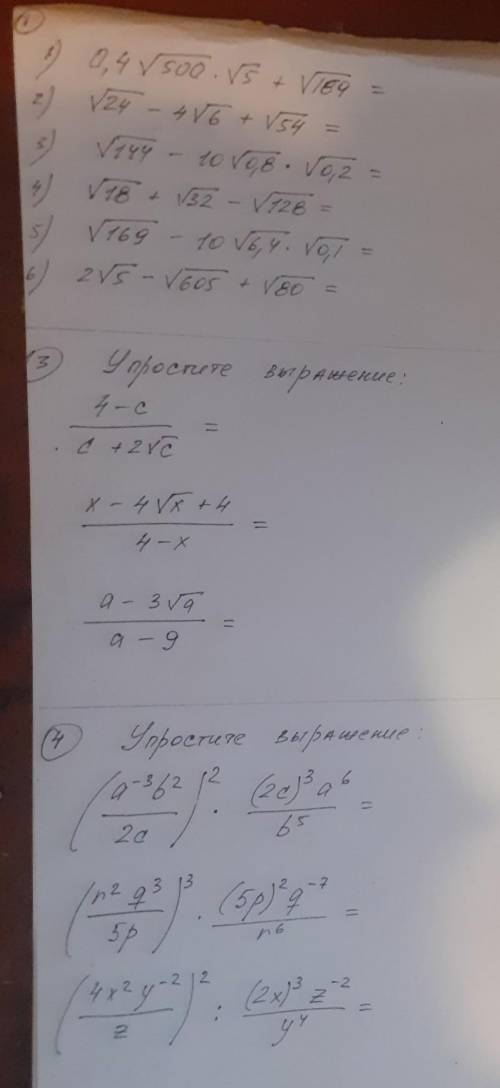 ①
1) 0,4√500 · √5 + √189 =
2) √24 - 4√6 + √54 =
3) √144 - 10√0,8 · √0,2 =
4) √18 + √32 - √128 =
5) √169 - 10√6,4 · √0,1 =
6) 2√5 - √605 + √80 =
③ Упростите выражение:
(4-c)/(c+2√c) =
(x-4√x+4)/(4-x) =
(a-3√a)/(a-9) =
④ Упростите выражение:
(a⁻³b²/2c)² · (2c)³a⁶/b⁵ =
(n²q³/5p)³ · (5p)²q⁻⁷/n⁶ =
(4x²y⁻²/z)² : (2x)³z⁻²/y⁴ =